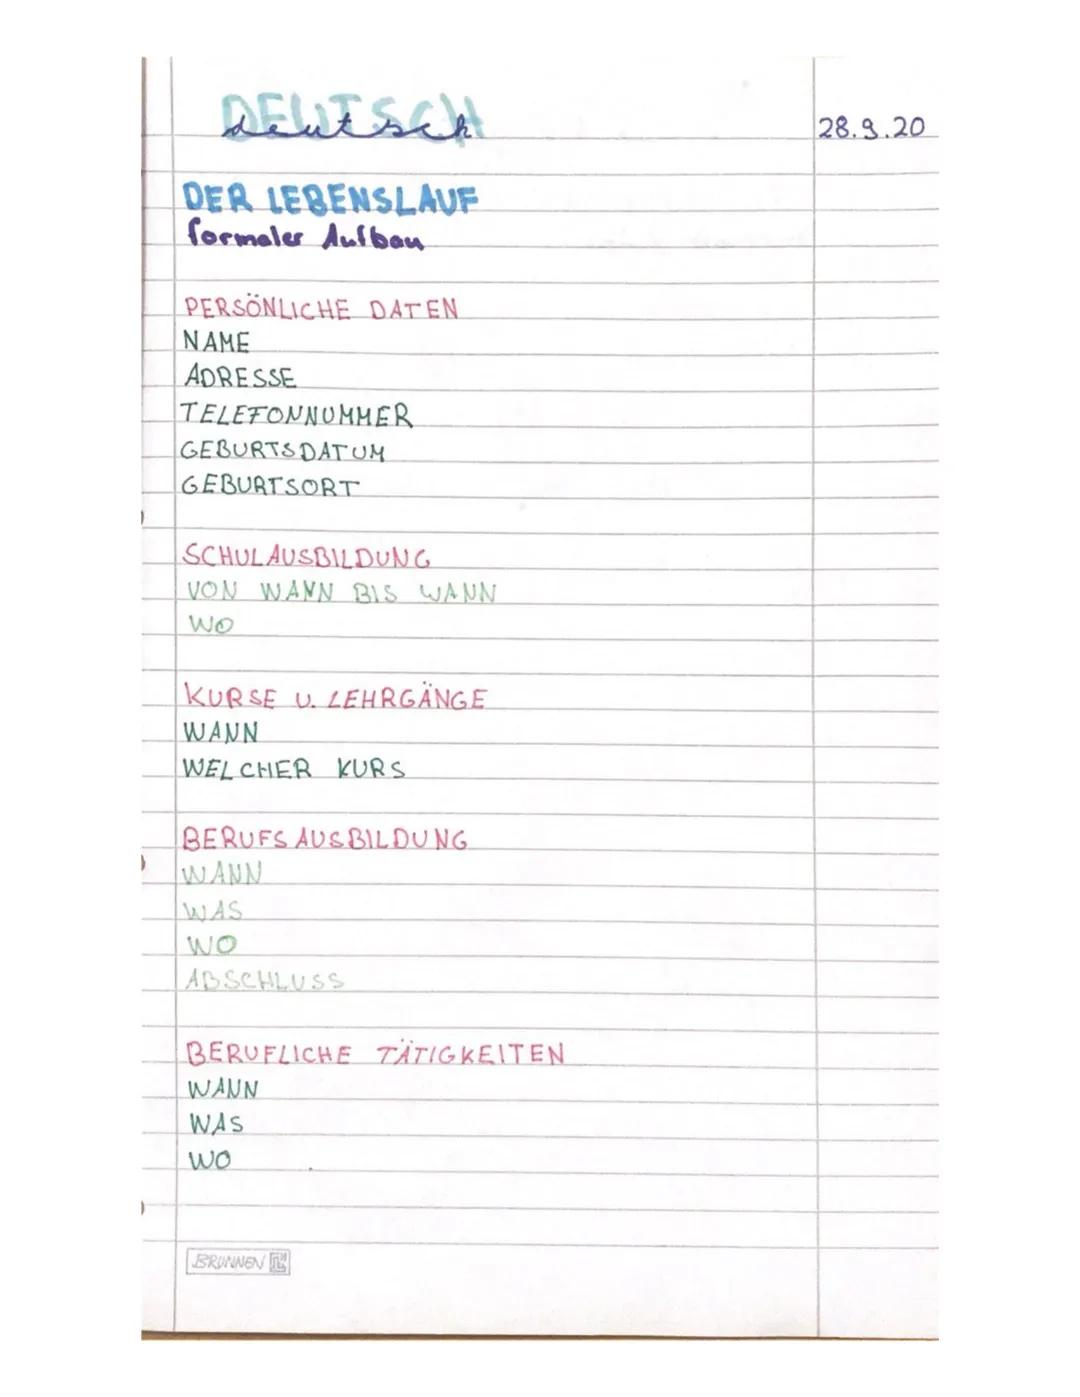 DEUTSCH
deutsch
28.9.20
DER LEBENSLAUF
formaler Aufbau
PERSÖNLICHE DATEN
NAME
ADRESSE
TELEFONNUMMER
GEBURTSDATUM
GEBURTSORT
SCHULAUSBILDUNG
VON WANN BIS WANN
WO
KURSE U. LEHRGÄNGE
WANN
WELCHER KURS
BERUFSAUSBILDUNG
WANN
WAS
WO
ABSCHLUSS
BERUFLICHE TÄTIGKEITEN
WANN
WAS
WO
BRUNNEN